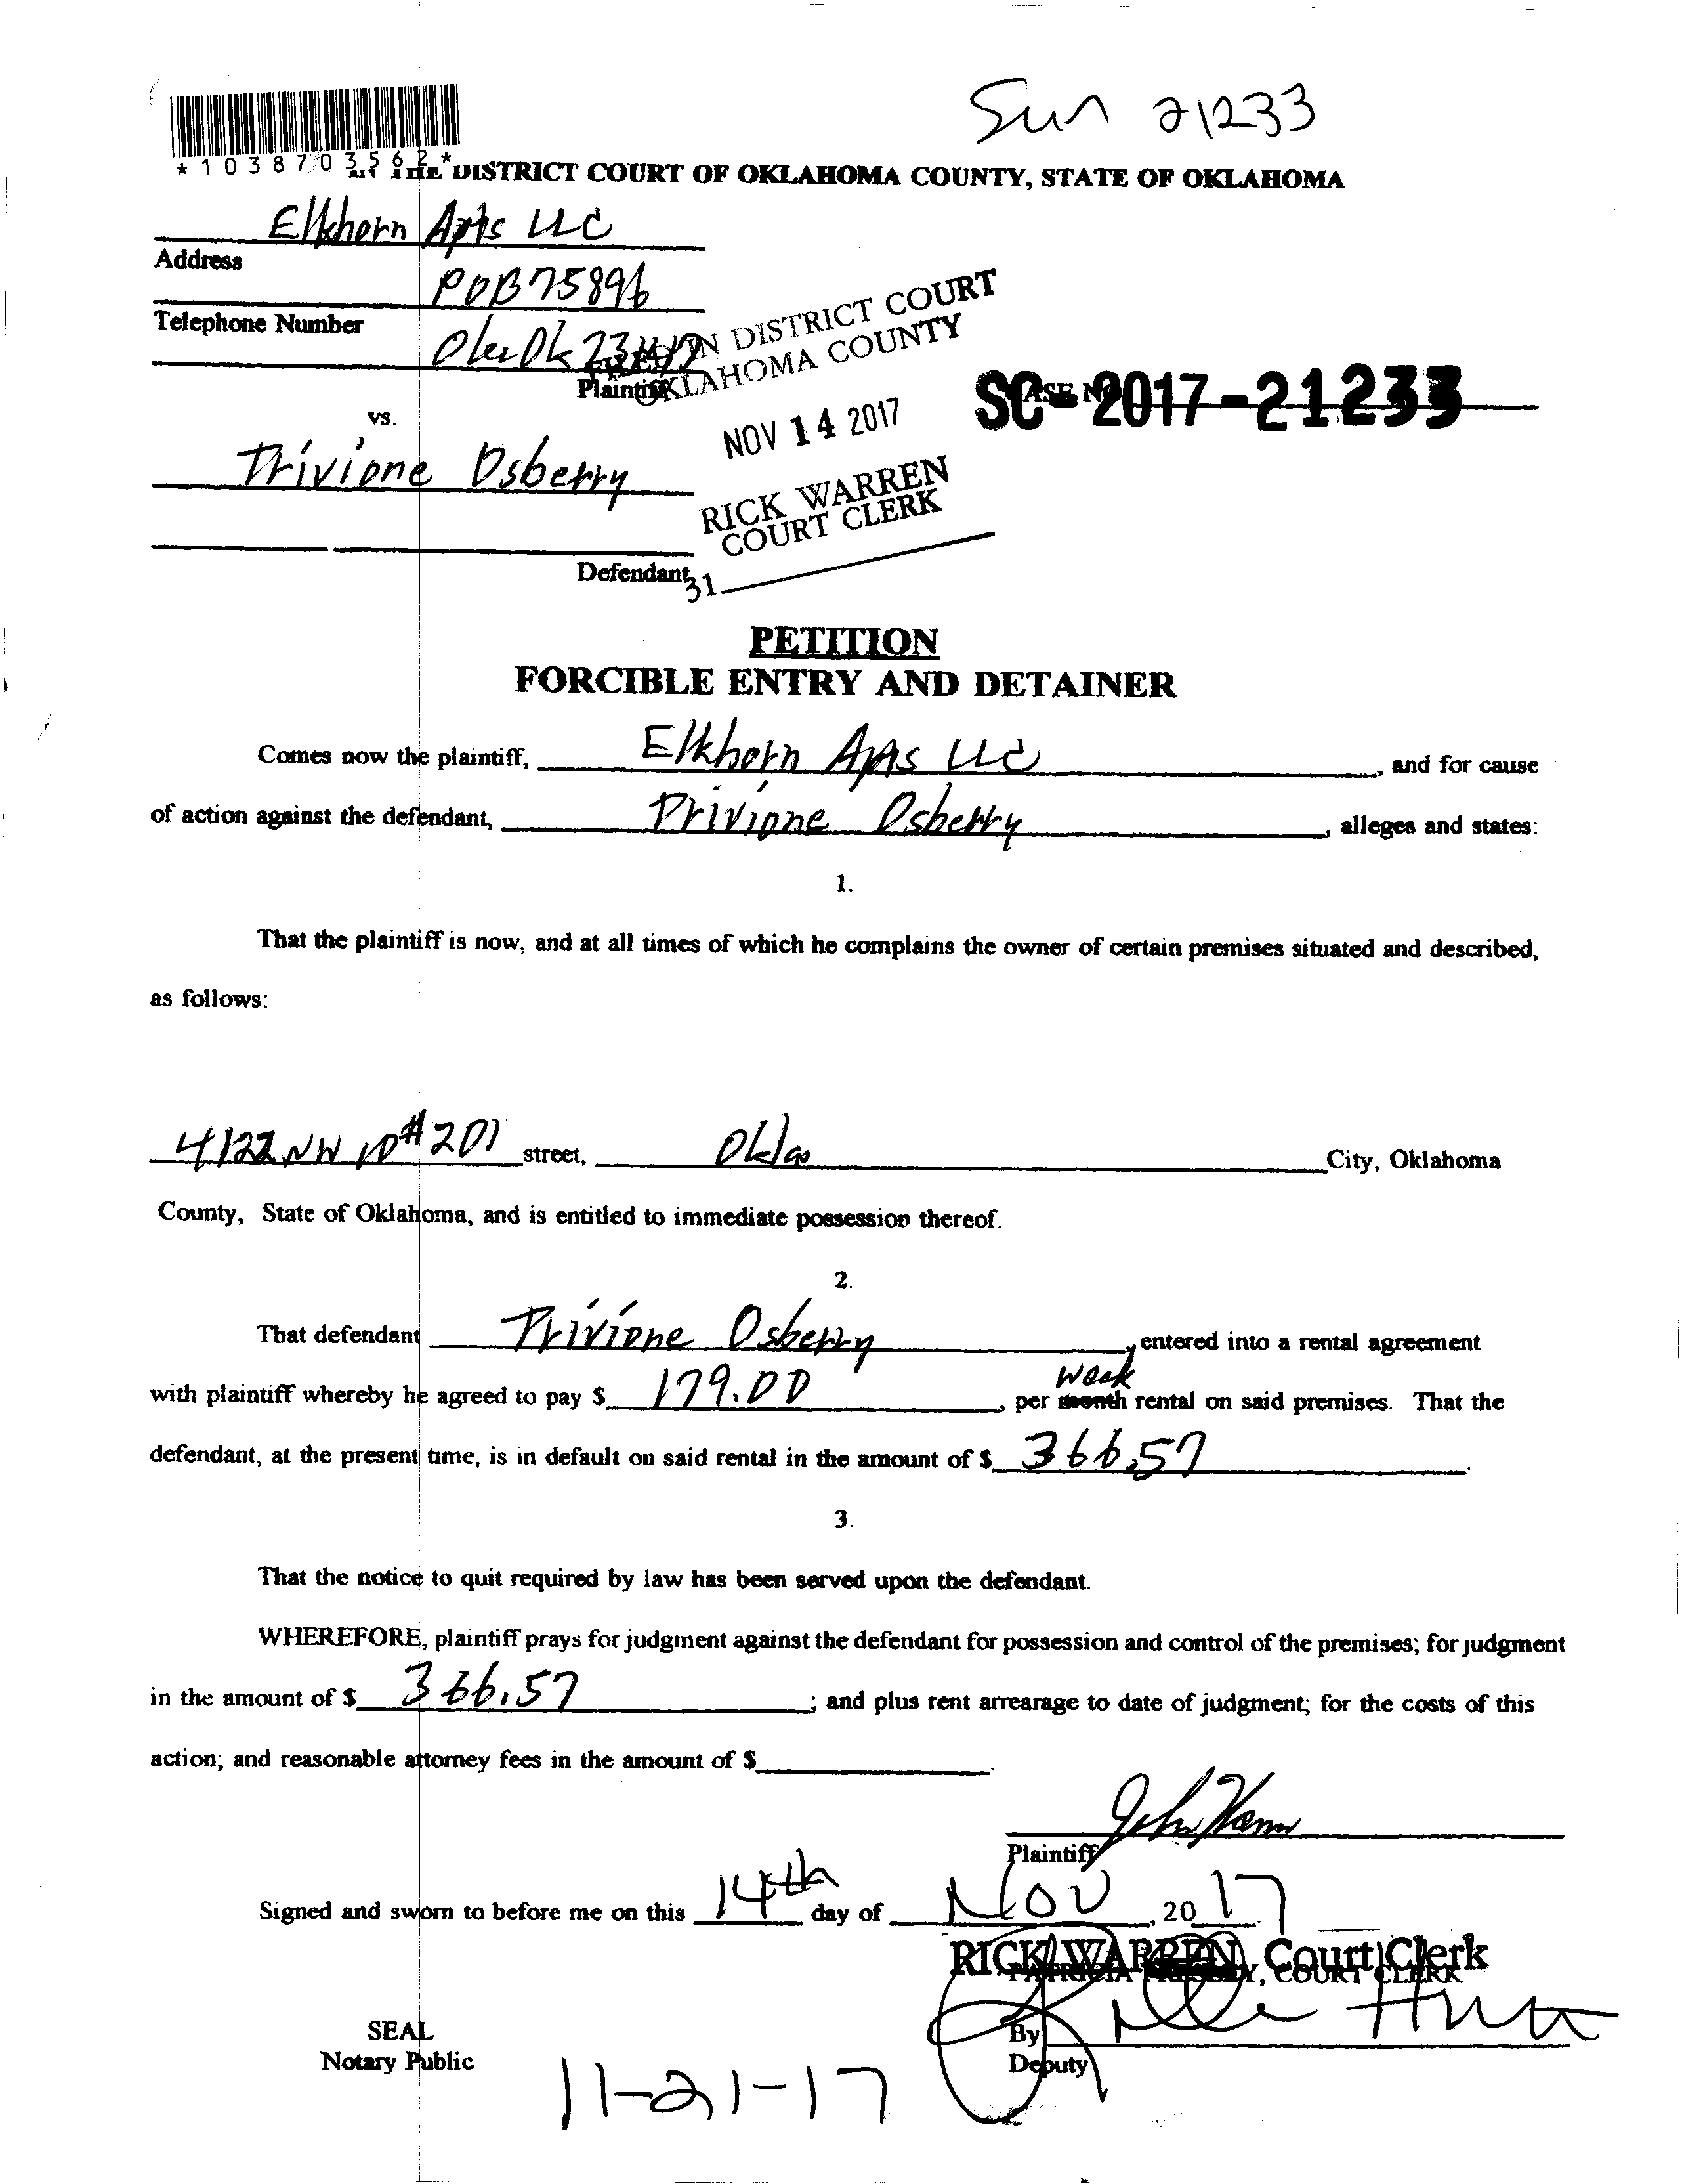 Sun 21233
*1038703562*
IN THE DISTRICT COURT OF OKLAHOMA COUNTY, STATE OF OKLAHOMA
Elkhorn Apts LLC
Address
POB 75896
Telephone Number
Ok 73147
Plaintiff
FILED IN DISTRICT COURT
OKLAHOMA COUNTY
NOV 14 2017
RICK WARREN
COURT CLERK
31
CASE NO.
SC-2017-21233
vs.
Trivione Osberry
Defendant
PETITION
FORCIBLE ENTRY AND DETAINER
Comes now the plaintiff, Elkhorn Apts LLC, and for cause
of action against the defendant, Trivione Osberry, alleges and states:
1.
That the plaintiff is now, and at all times of which he complains the owner of certain premises situated and described,
as follows:
4122 NW 10 #201 street, Okla City, Oklahoma
County, State of Oklahoma, and is entitled to immediate possession thereof.
2.
That defendant Trivione Osberry, entered into a rental agreement
week
with plaintiff whereby he agreed to pay $ 179.00, per month rental on said premises. That the
defendant, at the present time, is in default on said rental in the amount of $ 366.57.
3.
That the notice to quit required by law has been served upon the defendant.
WHEREFORE, plaintiff prays for judgment against the defendant for possession and control of the premises; for judgment
in the amount of $ 366.57; and plus rent arrearage to date of judgment; for the costs of this
action; and reasonable attorney fees in the amount of $
John
Plaintiff
Signed and sworn to before me on this 14th day of Nov, 20 17
RICK WARREN, Court Clerk
PATRICIA PRESLEY, COURT CLERK
SEAL
By
Notary Public
Deputy
11-21-17